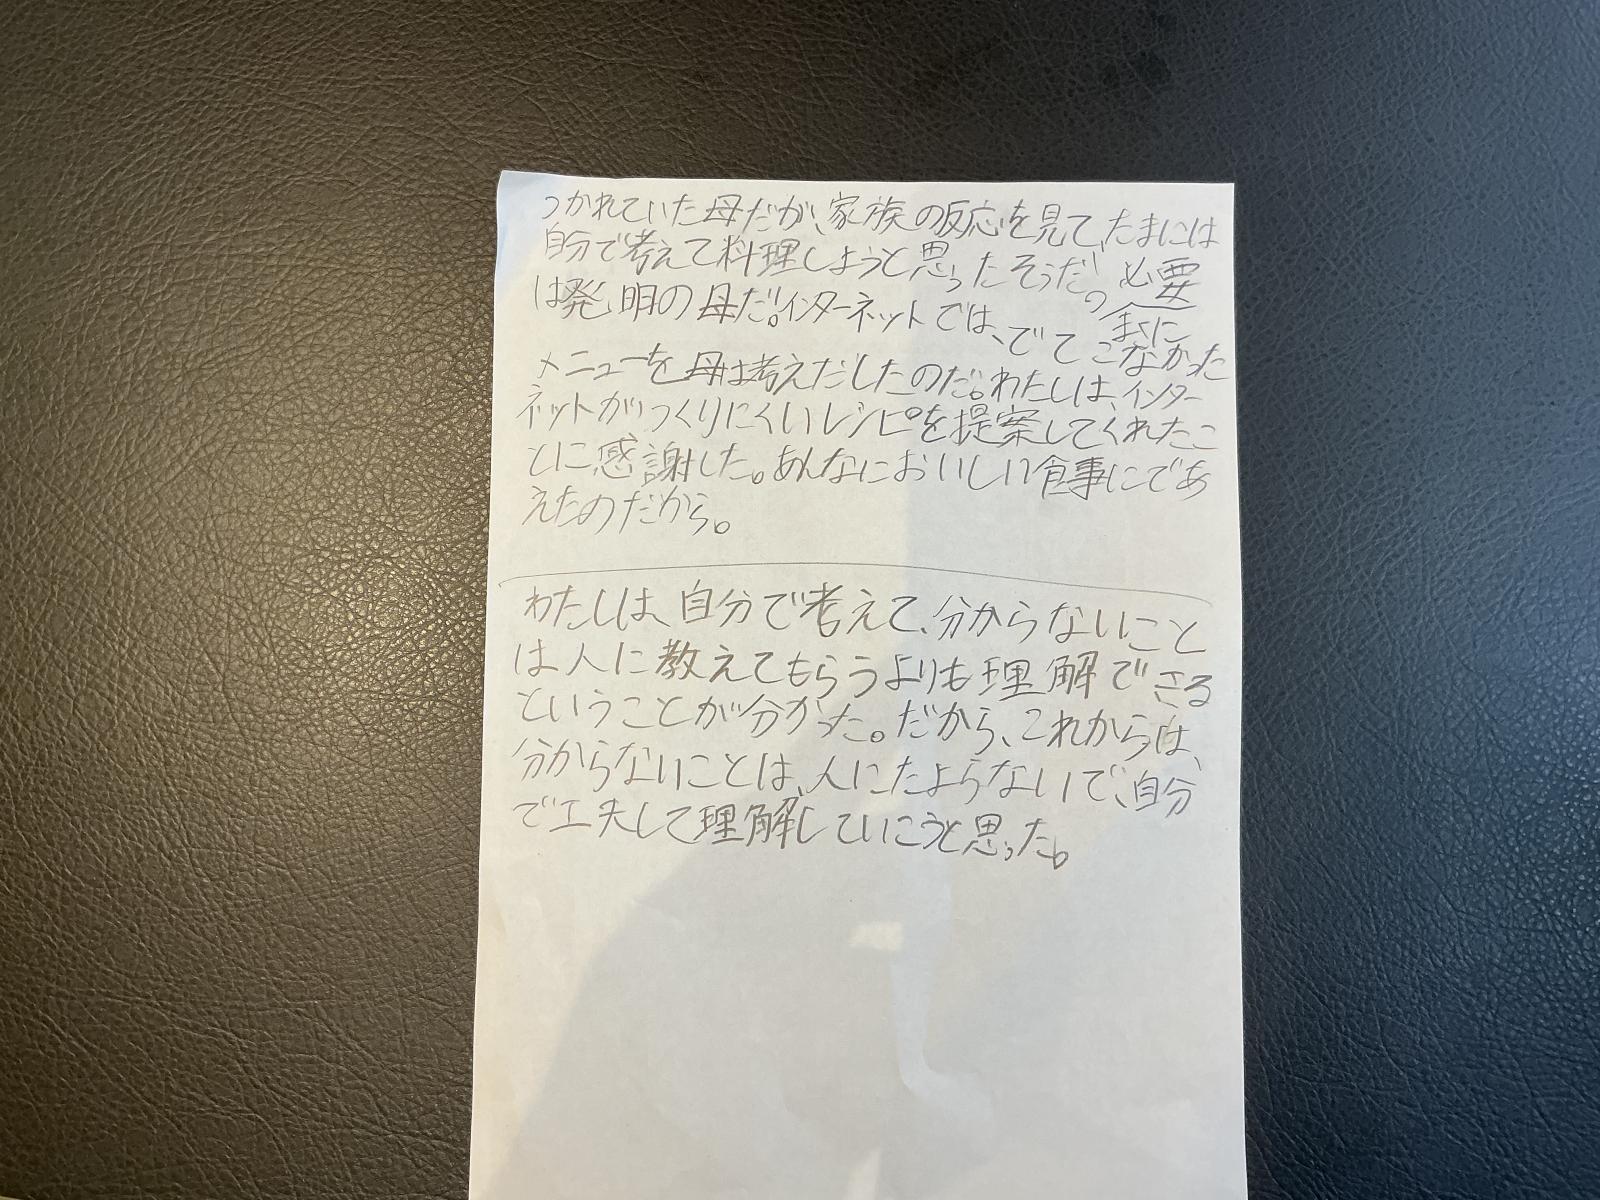 つかれていた母だが、家族の反応を見て、たまには
自分で考えて料理しようと思ったそうだ。必要
は発明の母だ。インターネットでは、でてこなかった
まさに
メニューを母は考えだしたのだ。わたしは、インター
ネットがつくりにくいレシピを提案してくれたこ
とに感謝した。あんなにおいしい食事にであ
えたのだから。
わたしは、自分で考えて、分からないこと
は人に教えてもらうよりも理解できる
ということが分かった。だから、これからは、
分からないことは、人にたよらないで、自分
で工夫して理解していこうと思った。